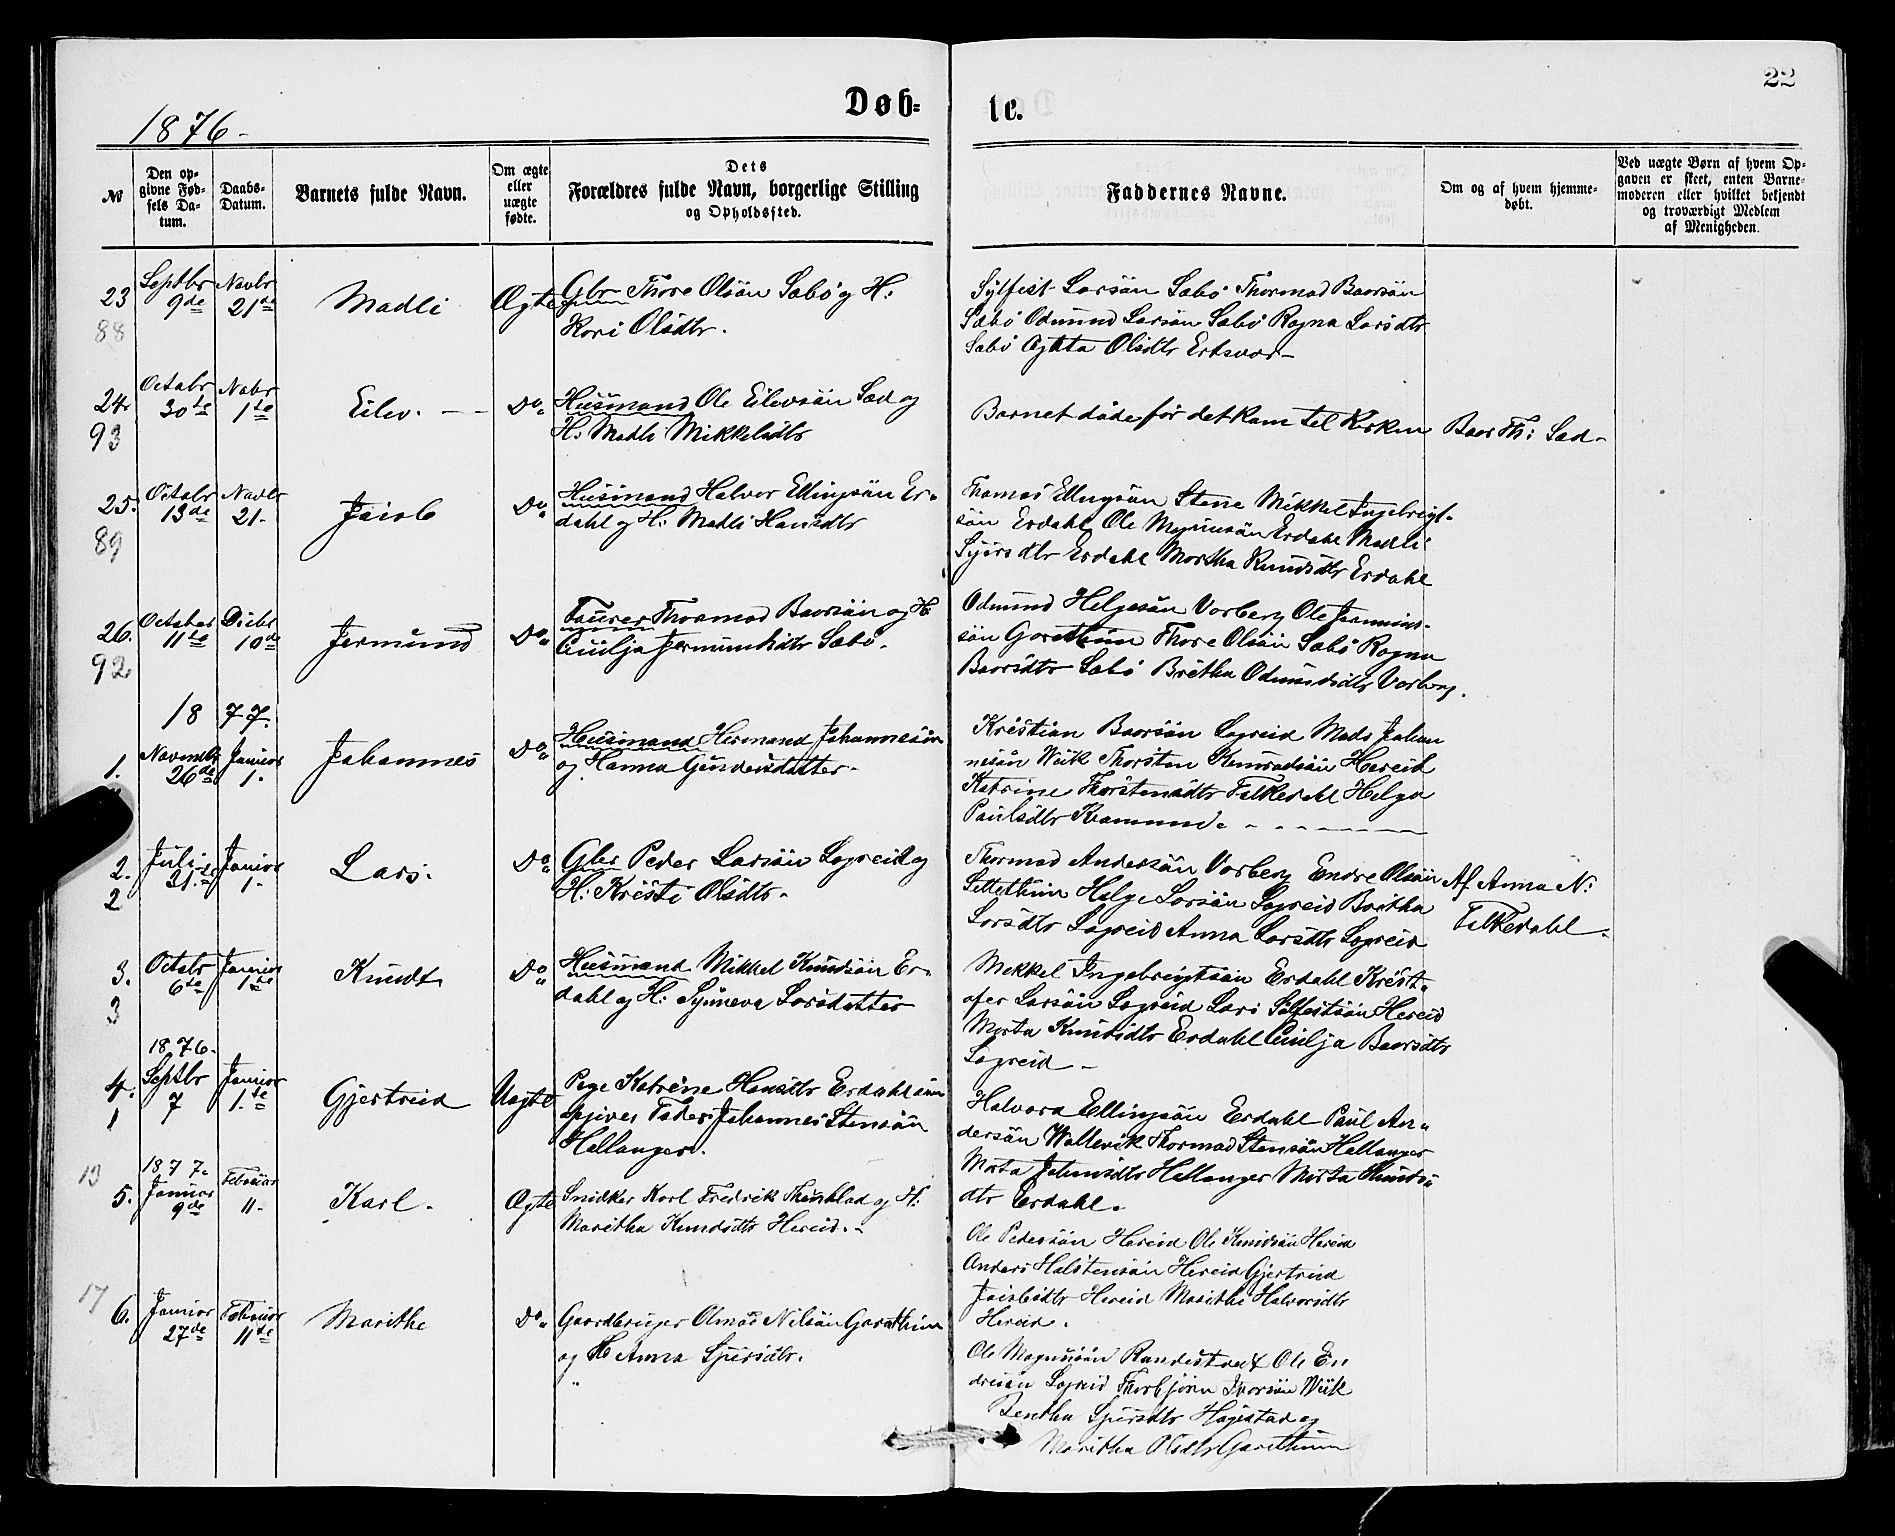 22
Døb=
te.
1876-
№
Den op-
givne Fød-
sels Da-
tum.
Daabs-
Datum.
Barnets fulde Navn.
Om ægte
eller
uægte
fødte.
Dets
Forældres fulde Navn, borgerlige Stilling
og Opholdssted.
Faddernes Navne.
Om og af hvem hjemme-
døbt.
Ved uægte Børn af hvem Op-
gaven er skeet, enten Barne-
moderen eller hvilket bekjendt
og troværdigt Medlem
af Menigheden.
23
88
Septbr
9de
Novbr
21de
Madli
Ægte
Gbr Thore Olsön Sæbö og H:
Kari Olsdtr.
Sylfest Larsön Sæbö Thormod Baarsön
Sæbö Odmund Larsön Sæbö Ragna Larsdtr
Sæbö Olsdtr Ertsvor-
24
93
Octobr
30te
Nobr
1te
Eilev.
Do
Husmand Ole Eilevsön Sæd og
H: Madli Mikkelsdtr
Barnet döde för det kom til Kirken
Baar Th: Sæd-
25.
89
Octobr
13de
Novbr
21-
Jacob
Do
Husmand Halvor Ellingsön Er-
dahl og H: Madli Hansdtr
Thomas Ellingsön Stene Mikkel Ingebrigt-
sön Erdahl Ole Magnusön Erdahl Madli
Sjursdtr Erdahl Martha Knudsdtr Erdahl
26.
92
October
11te
Dicbr
10de
Jermund
Do
Thormod Baarsön og H:
Cicilja Jermundsdtr Sæbö.
Odmund Helgesön Vorberg Ole
sön Garethun Thore Olsön Sæbö Ragna
Baarsdtr Sæbö Britha Odmundsdtr Vorberg.
1877.
1.
Novembr
26de
Januar
1.
Johannes
Do
Husmand Hermand Johannesön
og Hanna Gundersdatter-
Kristian Baarsön Legreid Mads Johan
nesön Wiik Thorsten Konradsön Hereid
Katrine Thorstensdtr Tilkedahl Helga
Paulsdtr Kvammen.
2.
2
Juli
21.
Januar
1.
Lars.
Do
Gbr Peder Larsön Legreid og
H: Kristi Olsdtr-
Thormod Andersön Vorberg Endre Olsön
Settethun Helge Larsön Legreid Britha
Larsdtr Legreid Anna Larsdtr Legreid
Af Anna N:
Tilkedahl.
3.
3
Octobr
6te
Januar
1te
Knudt
Do
Husmand Mikkel Knudsön Er-
dahl og H: Synneva Larsdatter
Mekkel Ingebrigtsön Erdahl Krist-
ofer Larsön Legreid Lars Sölfestsön Hereid
Marta Knudsdtr Erdahl Cicilja Baarsdtr
Legreid -
1876.
4.
1
Septbr
7
Januar
1.te
Gjertrud
Uægte
Pige Katrine Hansdtr Erdahl som
opgiver Fader: Johannes Stensön
Hellanger.
Halvard Ellingsön Erdahl Paul An-
dersön Wallevik Thormod Stensön Hellanger
Marta Hellanger Marta Knuds-
dtr Erdahl.
13
1877.
5.
Januar
9de
Februar
11.
Karl.
Ægte
Snidker Karl Fredrik og H:
Maritha Knudsdtr Hereid.-
Ole Pedersön Hereid Ole Knudsön Hereid
Anders Halstensön Hereid Gjertrud
Jacobsdtr Hereid Marithe Halvorsdtr
Hereid.
17
6.
Januar
27de
Februar
11te
Marithe
Do
Gaardbruger Nilsön Garethun
og H Anna Sjursdtr.
Ole Magnusön Ole En
dresön Legreid Thorbjörn Ivarsön Wiik
Bentha Sjursdtr Hagestad og
Maritha Olsdtr Garethun